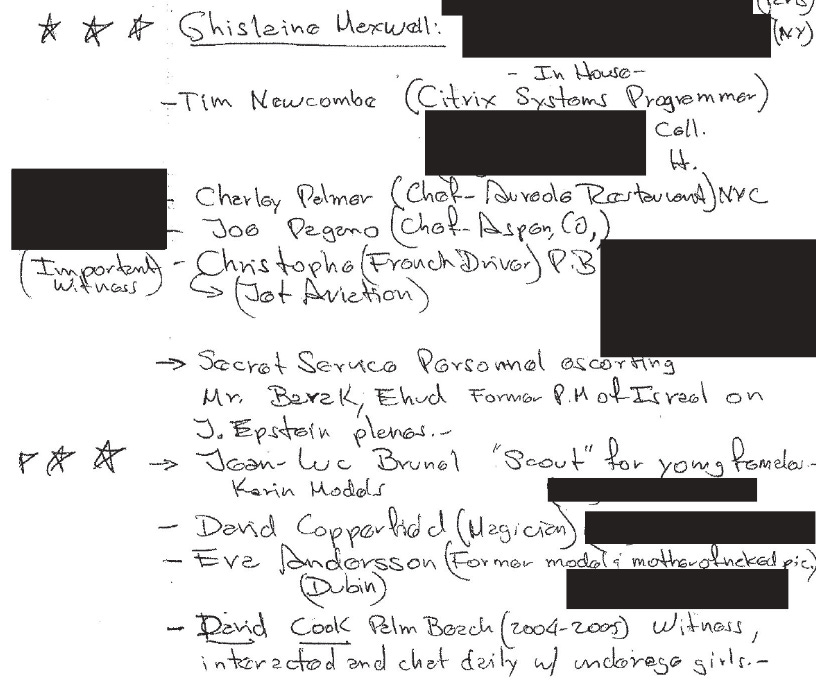 Ghislaine Maxwell:
(NY)
- In House -
- Tim Newcombe (Citrix Systems Programmer)
Cell.
H.
- Charley Palmer (Chef - Aureole Restaurant) NYC
- Joe Pagano (Chef - Aspen, CO,)
(Important Witness) - Christophe (French Driver) P.B
(Jet Aviation)
→ Secret Service Personnel escorting
Mr. Barak, Ehud Former P.M of Israel on
J. Epstein planes.-
→ Jean-Luc Brunel "Scout" for young females -
Karin Models
- David Copperfield (Magician)
- Eva Andersson (Former model & mother of naked pic.)
(Dubin)
- David Cook Palm Beach (2004-2005) Witness,
interacted and chat daily w/ underage girls.-